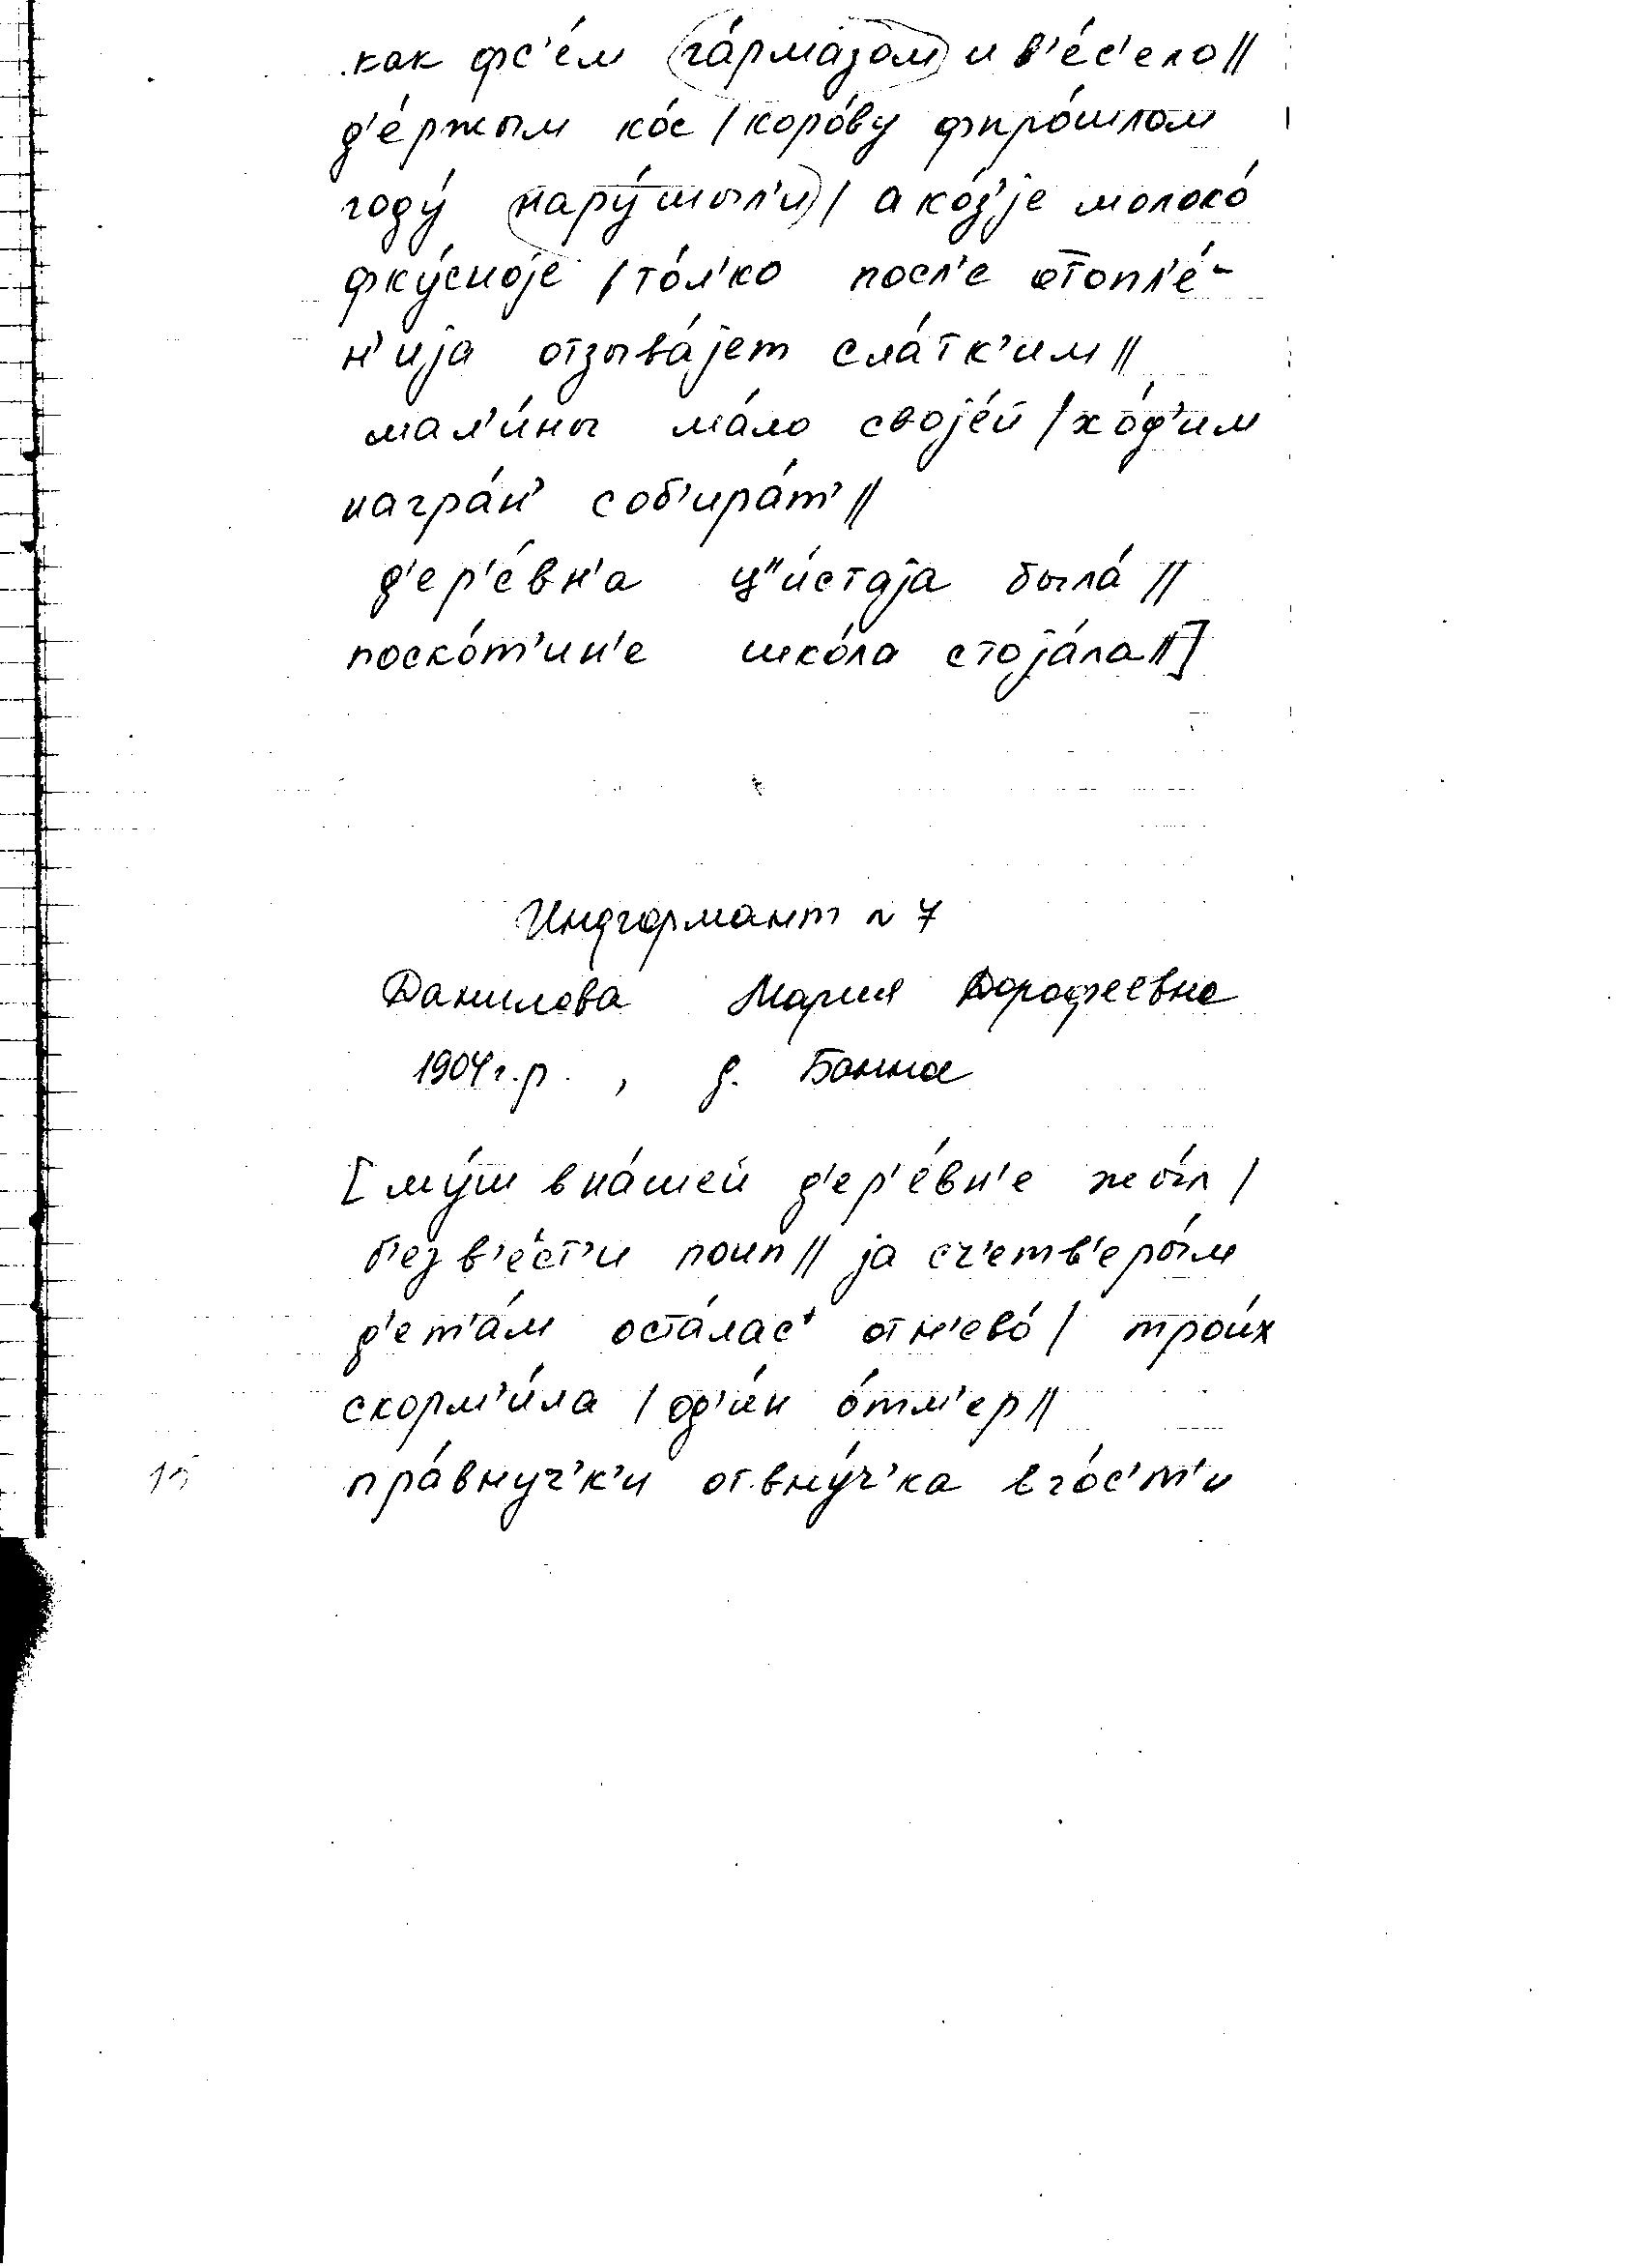 как фс'е́м га́рмазом и в'е́с'ело||
д'е́ржым ко́с / коро́ву фпро́шлом
году́ нару́шыл'и / а ко́з'jе молоко́
фку́сноjе / то́л'ко посл'е отопл'е́-
н'иjа отзыва́jет сла́тк'им||
мал'и́ны ма́ло своjе́й / хо́д'им
награ́н' соб'ира́т'||
д'ер'е́вн'а ц"и́стаjа была́||
поско́т'ин'е шко́ла стоjа́ла||]
Информант № 7
Данилова Мария Дорофеевна
1904 г.р., д.
[му́ш в на́шей д'ер'е́вн'е жы́л /
б'ез в'е́ст'и поип|| jа сч'етв'еры́м
д'ет'а́м оста́лас' от н'ево́ / трои́х
скорм'и́ла / од'и́н о́тм'ер||
15 пра́внуч'к'и от вну́ч'ка в го́с'т'и